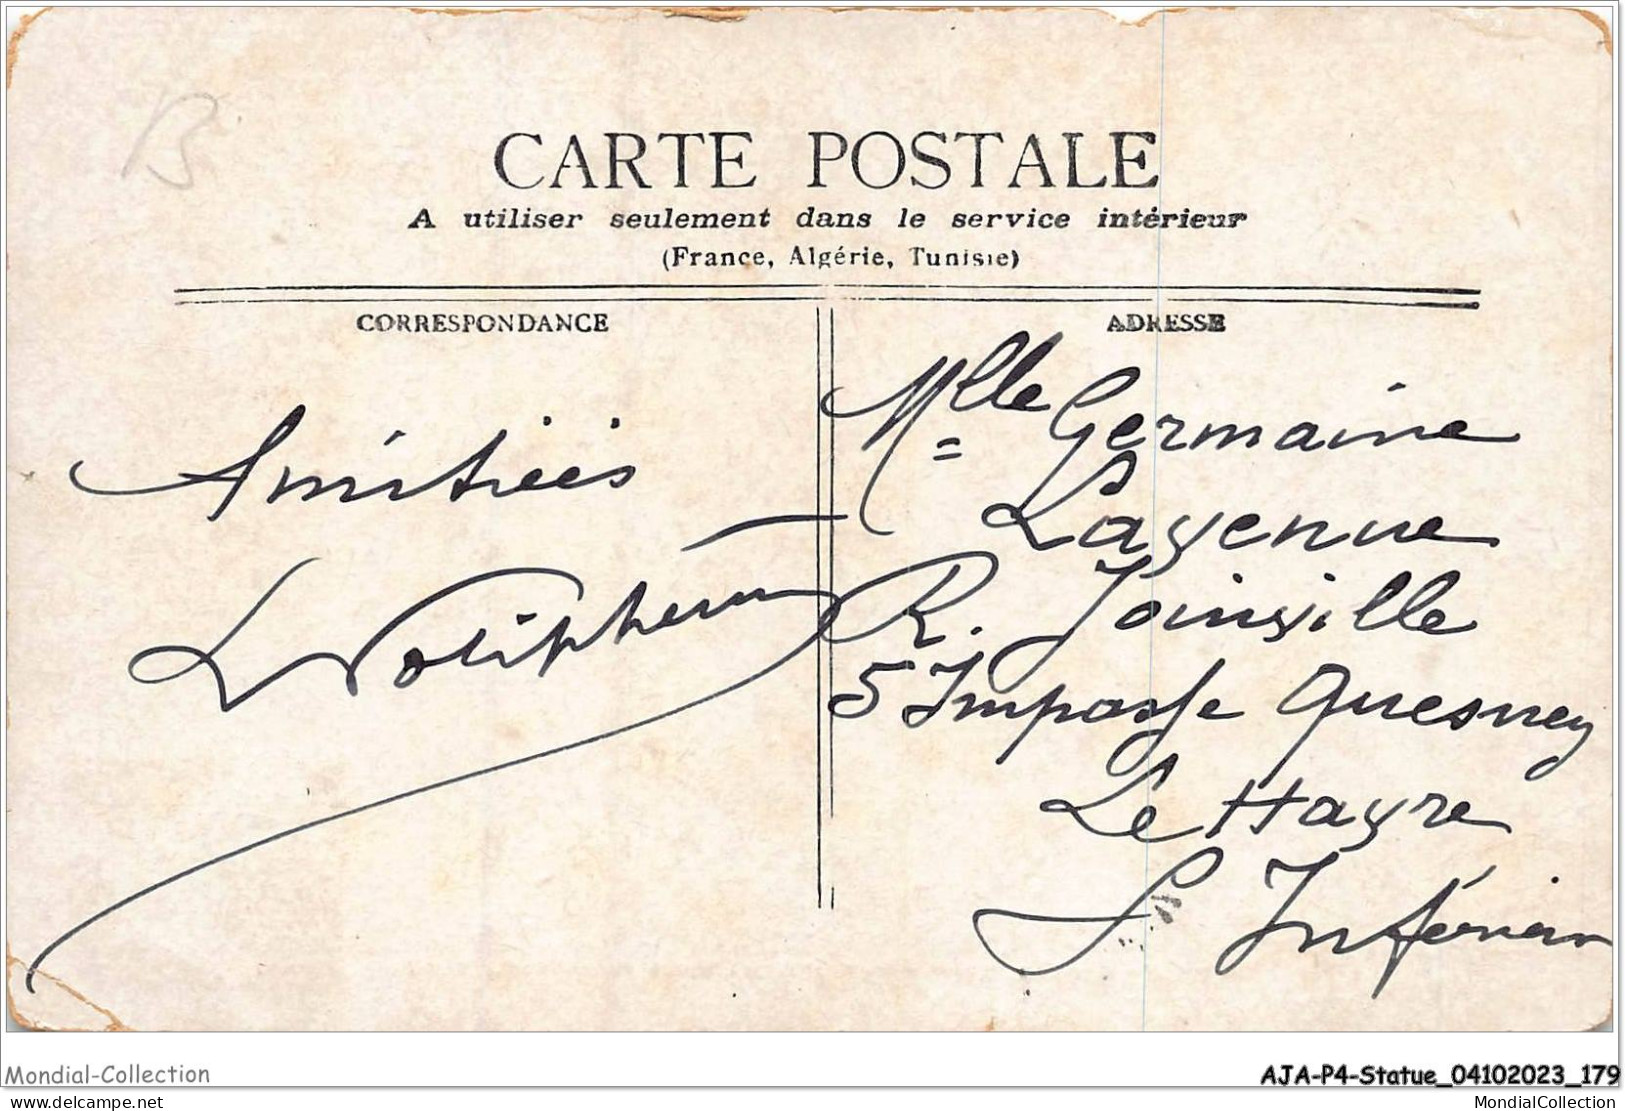 B
CARTE POSTALE
A utiliser seulement dans le service intérieur
(France, Algérie, Tunisie)
CORRESPONDANCE
ADRESSE
Amitiés
Mlle Germaine
Layenue
R. Joinville
5 Impasse Quesney
Le Havre
S Inférieur
Mondial-Collection
AJA-P4-Statue_04102023_179
delcampe.net
MondialCollection